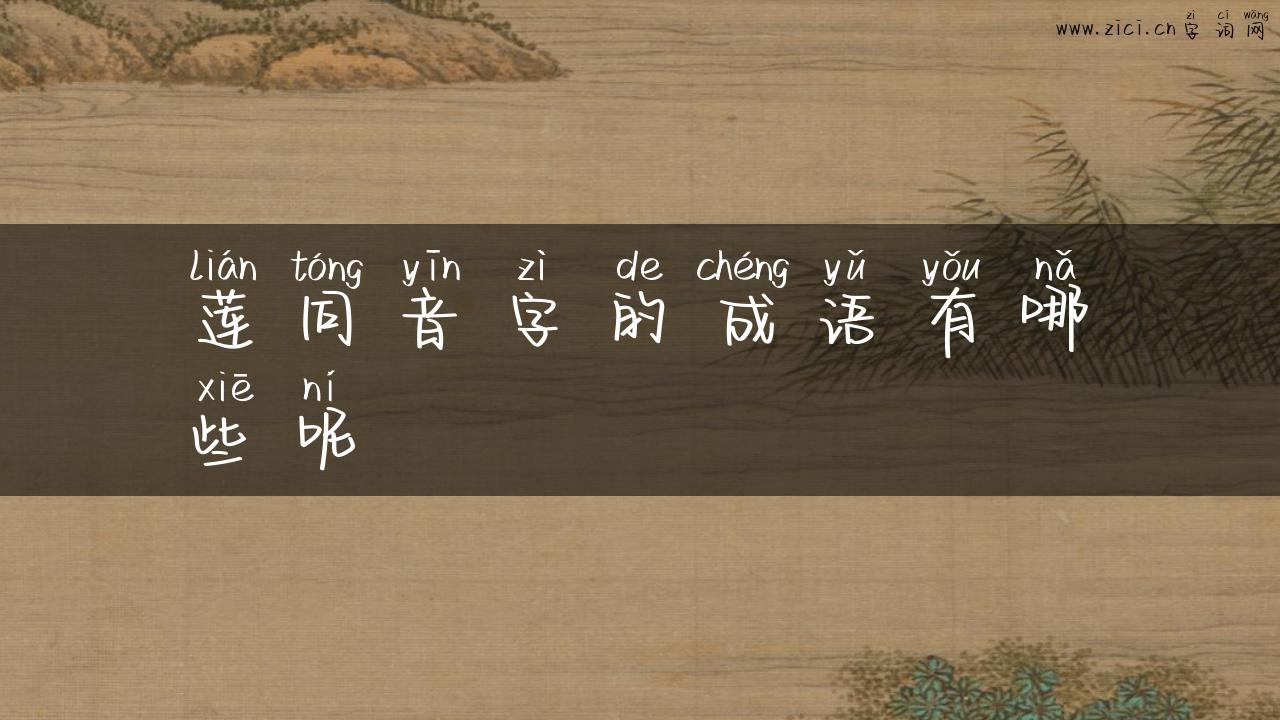 zì cí wǎng
www.zici.cn 字 词 网
lián tóng yīn zì de chéng yǔ yǒu nǎ
莲 同 音 字 的 成 语 有 哪
xiē ní
些 呢